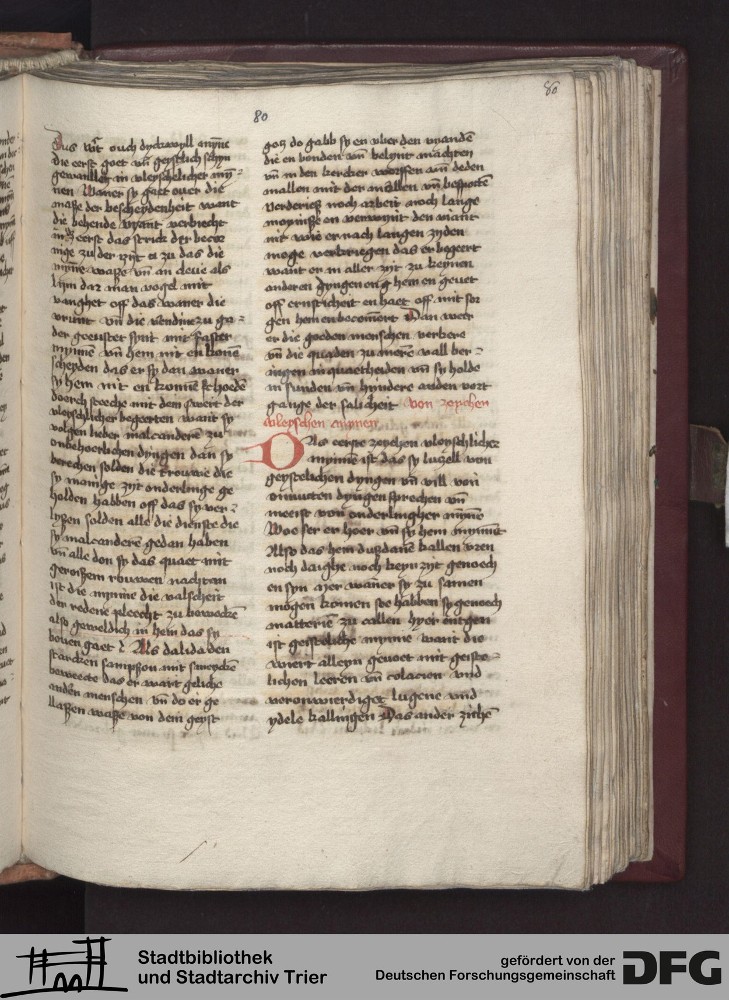 80
80
Dus wirt ouch dyckwyll mynne
die eerst goet vnd geystlich schyn
gewandlet in vleyschelicher myn
nen Waner sy gaet ouer die
maße der bescheydenheit want
die behende vyant verbircht
eerst das strick der
inge zu der zijt zu das die
mynne waße vnd an cleue als
lijm dar man vogel mit
vanghet off das waner die
vrunt vnd die vrundinne zu ga
der geeustet synt mit faster
mynnen vnd hem nit en konnen
scheyden das er sy dan waner
sy hem nit en konnen hoeden
doerch steeche mit dem swert der
vleyschlicher begerten want sy
volgen lieber malcanderen zu
onbehoerlichen dyngen dan sy
berechen solden die trouwe die
sy manige zijt onderlinge ge
holden habben off das sy ver
lyßen solden alle die dienste die
sy malcanderen gedan haben
vnd alle don sy das quaet mit
groißem rouwen nachtan
ist die mynne die valscheit
der redene pleecht zu
also geweldich in hem das sy
bouen gaet Als dalida den
starcken sampson mit
das er wart geliche
anderen menschen vnd do er ge
llaßen waße von dem geyst
gotz do gabb sy en vber den vyanden
die en bonden vnd blynt machten
vnd in den kercher worffen vnd deden
mallen mit der mollen vnd bespotten
noch arbeit noch lange
en verwynt den viant
nit wie er nach langen zyden
moge verkriegen das er begeert
want er in aller zijt zu keynen
anderen dyngen hem en geuet
off ernsticheit en haet off mit sor
gen hem en becomert Dan weer
er die goeden menschen verkere
vnd die quaden zu mere vall ber
ingen in quaetheiden vnd sy holde
in sunden vnd hyndere an den vort
gange der salicheit von zeychen
vleyschen mynnen
Das eerste zeychen vleyschlicher
mynnen ist das sy luyzell von
geystelichen dyngen vnd vill von
onnutten dyngen sprechen vnd
meerst von onderlingher mynnen
Woe ser er hoer vnd sy hem mynnet
Also das hem dußdane kallen vren
noch daighe noch keyn zijt genoech
en syn ayer waner sy zu samen
mogen komen soe habben sy genoech
matterien zu callen hyer
ist geistliche mynne want die
wiert alleyn geuoet mit geiste
lichen leeren vnd colacien vnd
veronwierdiget lugene vnd
ydele kallingen Das ander zichen
Stadtbibliothek
und Stadtarchiv Trier
gefördert von der
Deutschen Forschungsgemeinschaft
DFG